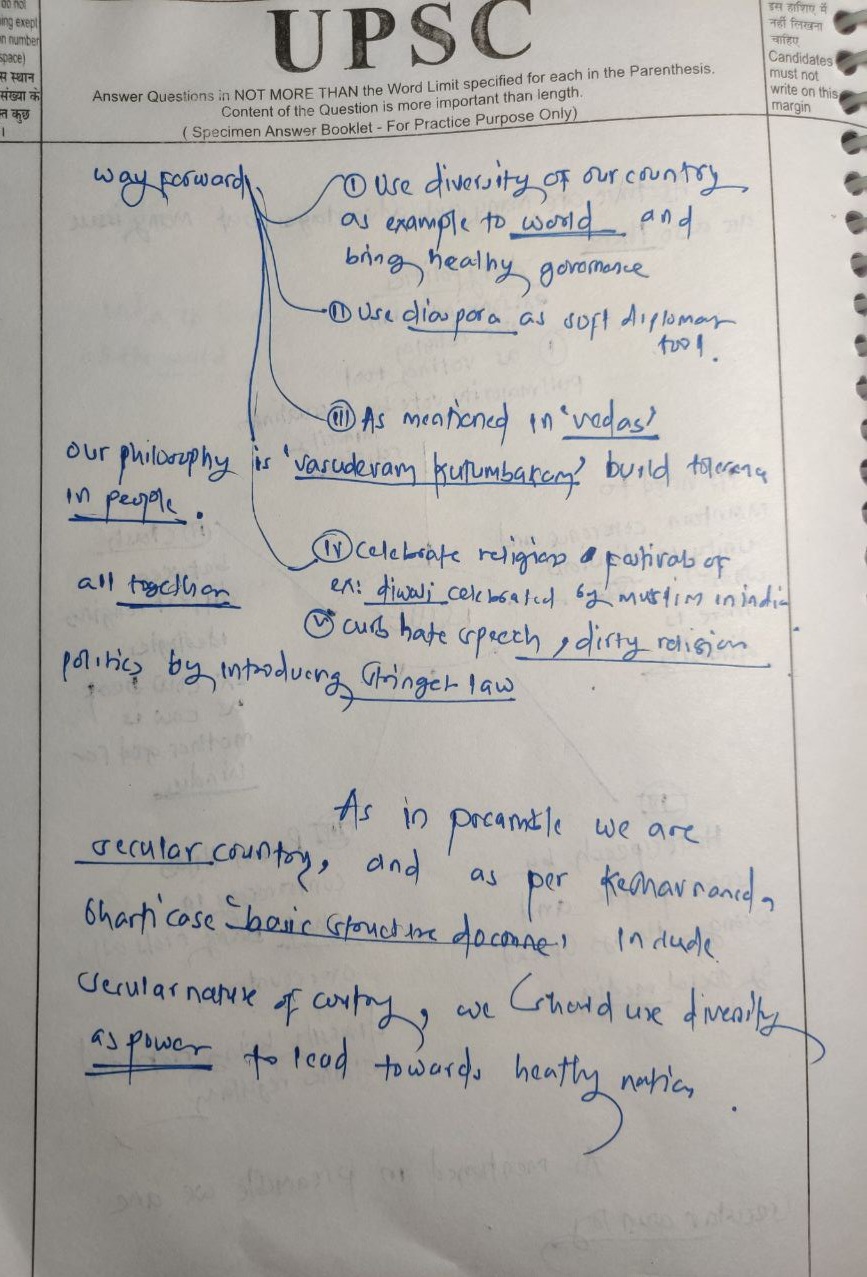 do not
ing exept
n number
space)
स स्थान
संख्या के
त कुछ
।
UPSC
Answer Questions in NOT MORE THAN the Word Limit specified for each in the Parenthesis.
Content of the Question is more important than length.
( Specimen Answer Booklet - For Practice Purpose Only)
इस हाशिए में
नहीं लिखना
चाहिए
Candidates
must not
write on this
margin
way forward
① Use diversity of our country
as example to world and
bring healhy governance
ⅱ Use diaspora as soft diplomacy
tool.
ⅲ As mentioned in 'vedas'
our philosophy is 'vasudevam kutumbakam' build tolerance
in people.
ⅳ celebrate religious festivals of
all together ex: diwali celebrated by muslim in india.
ⅴ curb hate speech, dirty religion
politics by introducing stringet law
As in preamble we are
secular country, and as per Keshavnand
Bharti case "basic structure doctrine" include
secular nature of country, we should use diversity
as power to lead towards heathy nation.